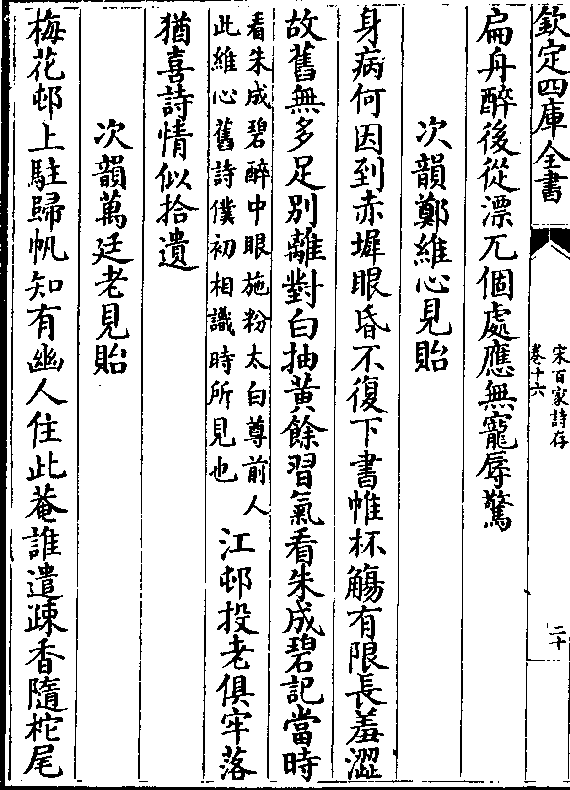 欽定四庫全書
宋百家詩存
卷十六
二十
扁舟醉後從漂兀個處應無寵辱驚
次韻鄭維心見貽
身病何因到赤墀眼昏不復下書帷杯觴有限長羞澀
故舊無多足別離對白抽黃餘習氣看朱成碧記當時
看朱成碧醉中眼施粉太白尊前人
此維心舊詩僕初相識時所見也
江邨投老俱牢落
猶喜詩情似拾遺
次韻萬廷老見貽
梅花邨上駐歸帆知有幽人住此菴誰遣疎香隨柁尾